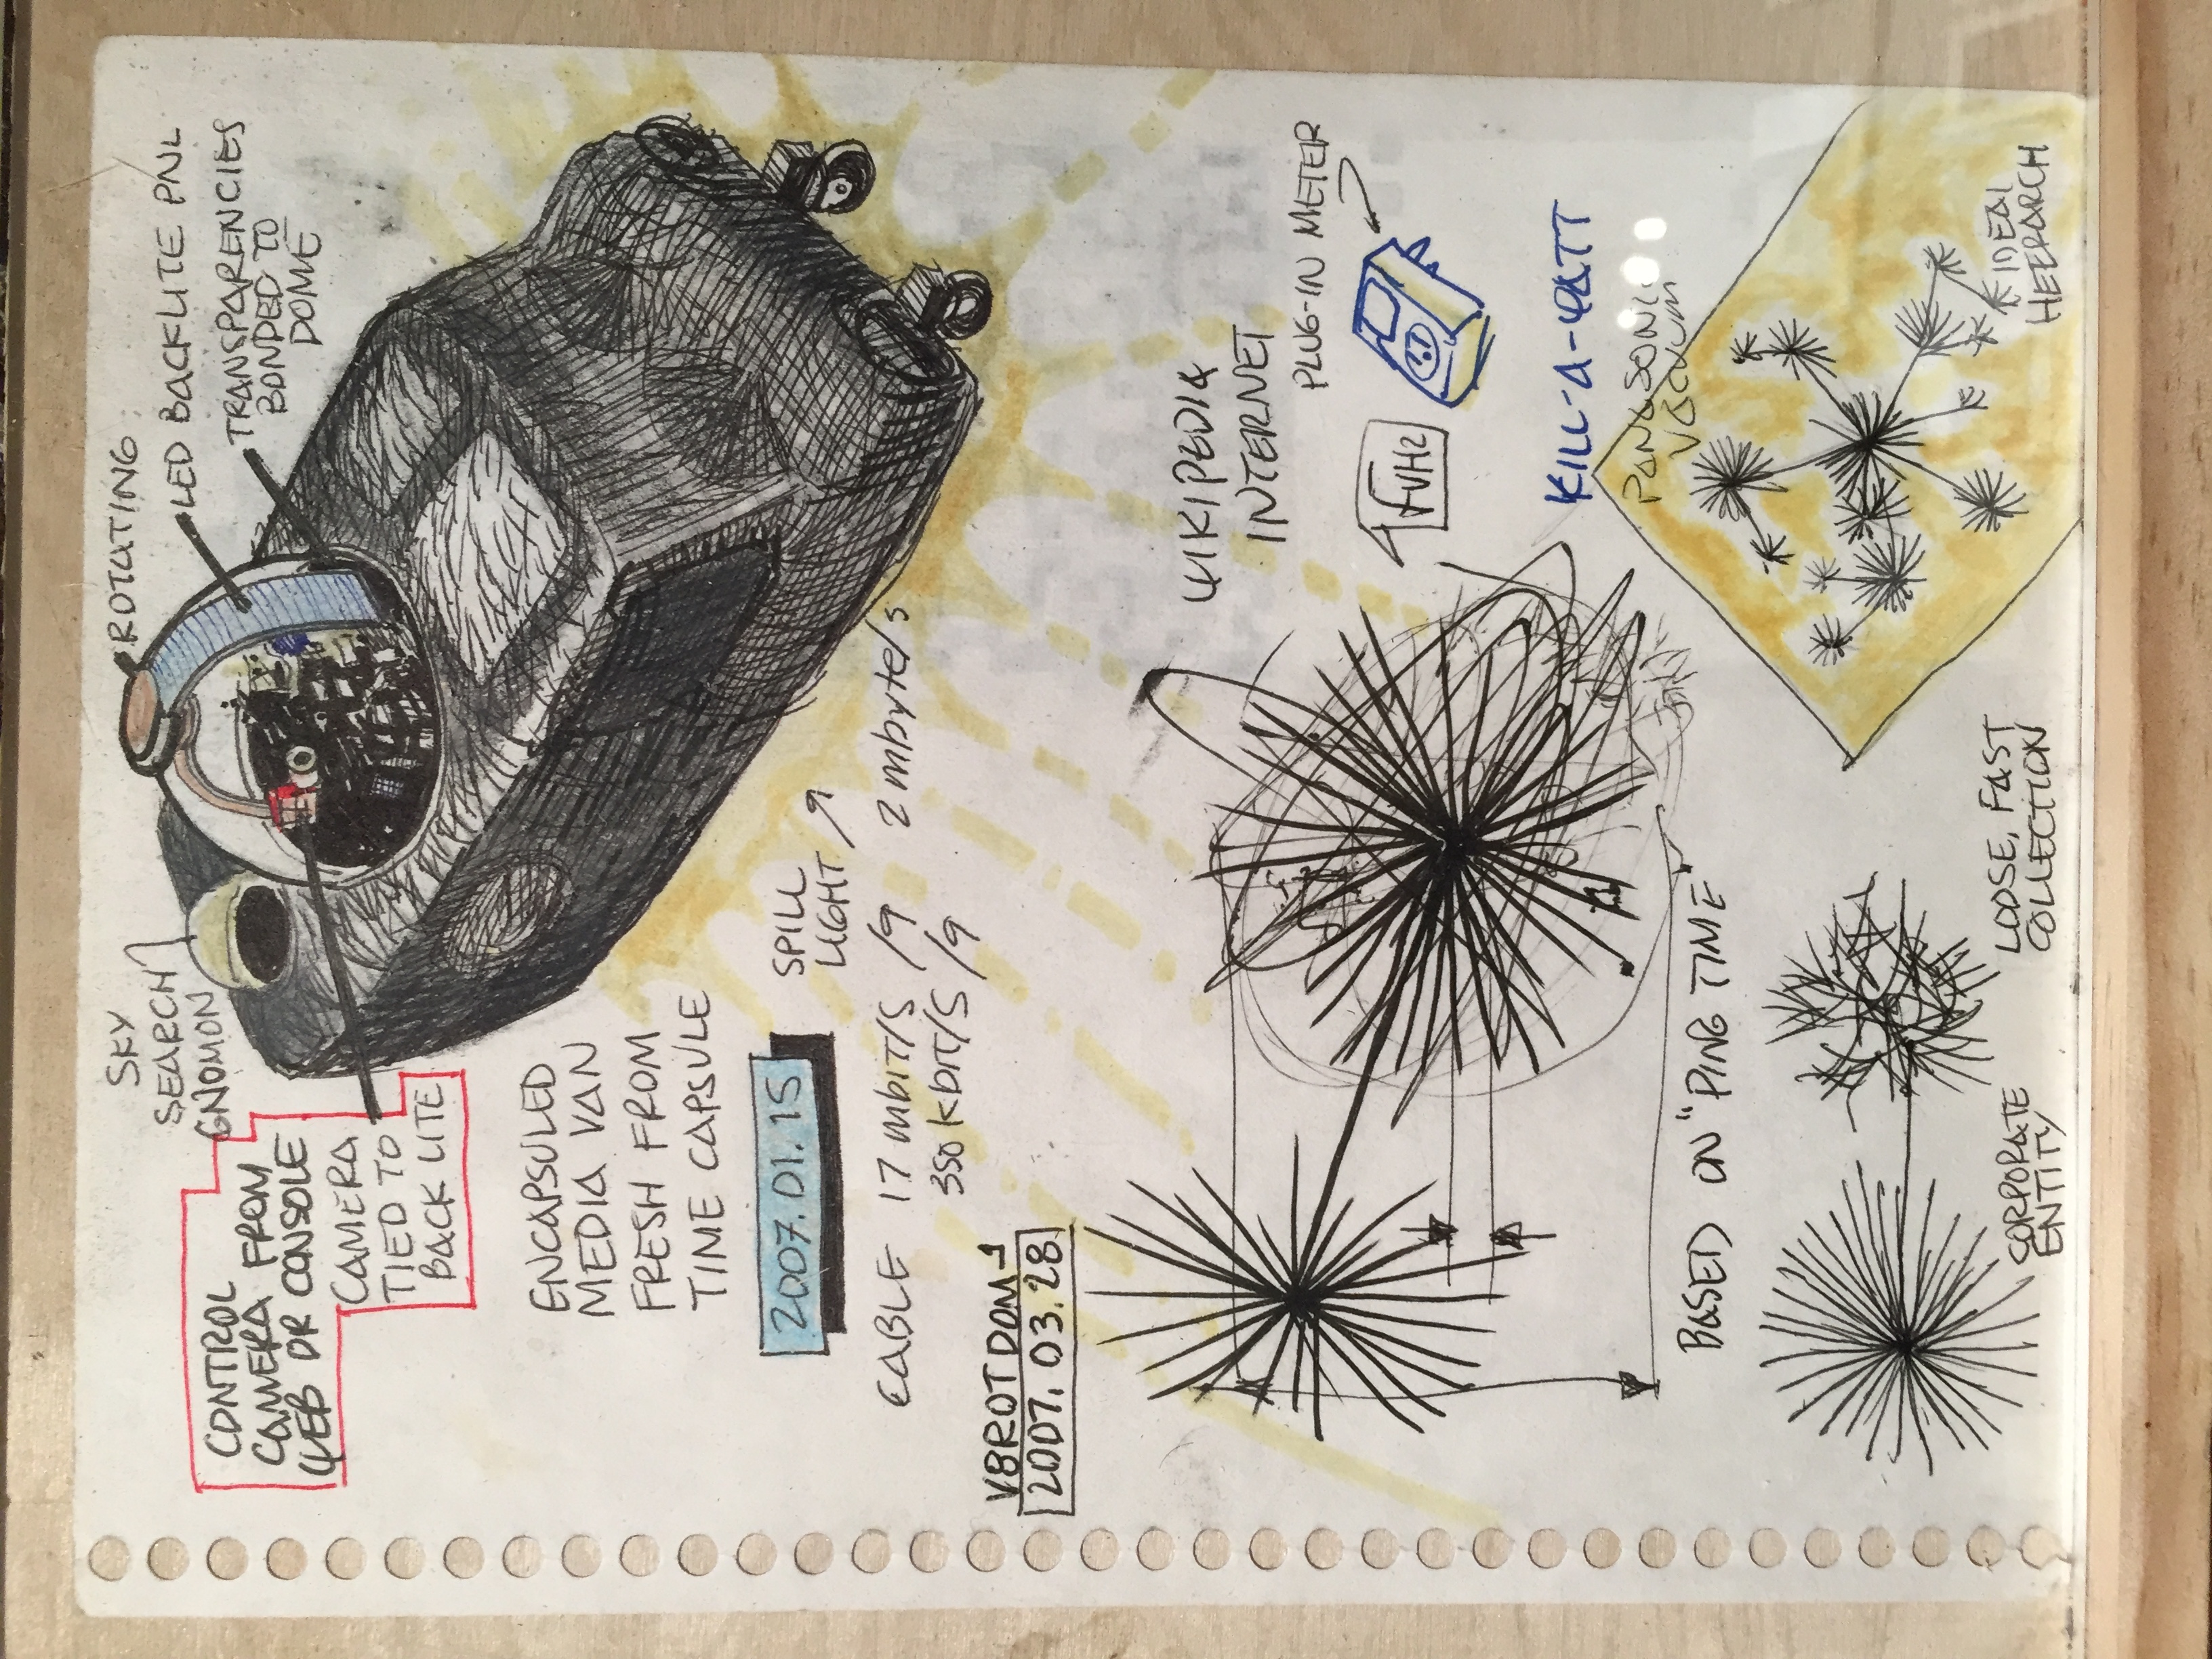 SKY
SEARCH
GNOMON
ROTATING
LED BACKLITE PNL
TRANSPARENCIES
BONDED TO
DOME
CONTROL
CAMERA FROM
WEB OR CONSOLE
CAMERA
TIED TO
BACK LITE
ENCAPSULED
MEDIA VAN
FRESH FROM
TIME CAPSULE
2007.01.15
SPILL
LIGHT
CABLE 17 mbiT/S /9 2 mbyte/s
350 KbIT/S /9
V8ROTDOM-1
2007.03.28
WIKIPEDIA
INTERNET
PLUG-IN METER
KILL-A-WATT
PANASONIC
VACUUM
BASED ON "PING TIME"
CORPORATE
ENTITY
LOOSE, FAST
COLLECTION
IDEAL
HEERARCH